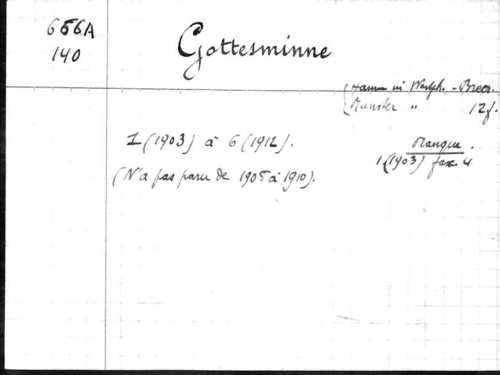 656A
140
Gottesminne
(Hamm in Westph. - Breer.
(Munster " 12 f.
1 (1903) à 6 (1912).
(N'a pas paru de 1905 à 1910).
Manque.
1 (1903) fasc. 4